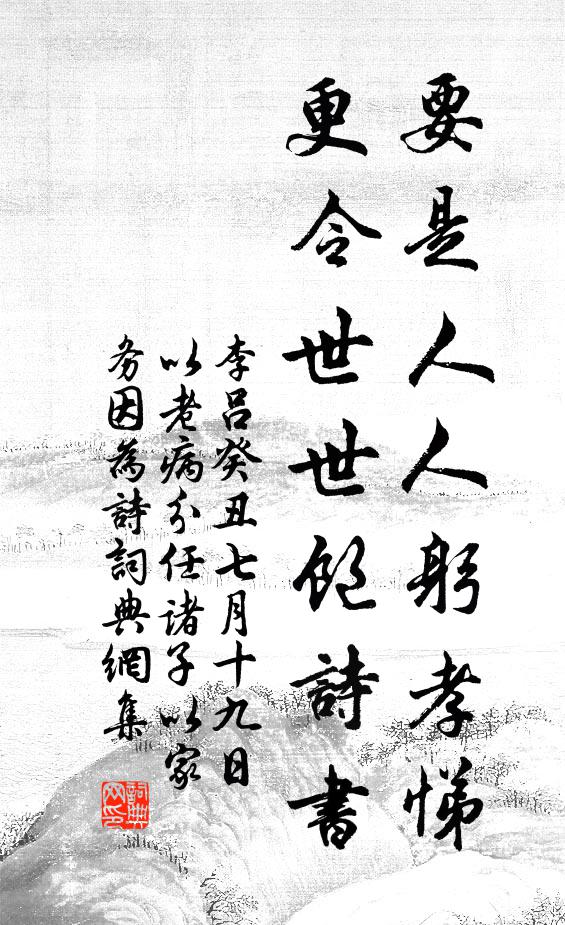 要是人人躬孝悌
更令世世飽詩書
李呂癸丑七月十九日
以老病分任諸子以家
务因為詩詞典網集
詞典网印